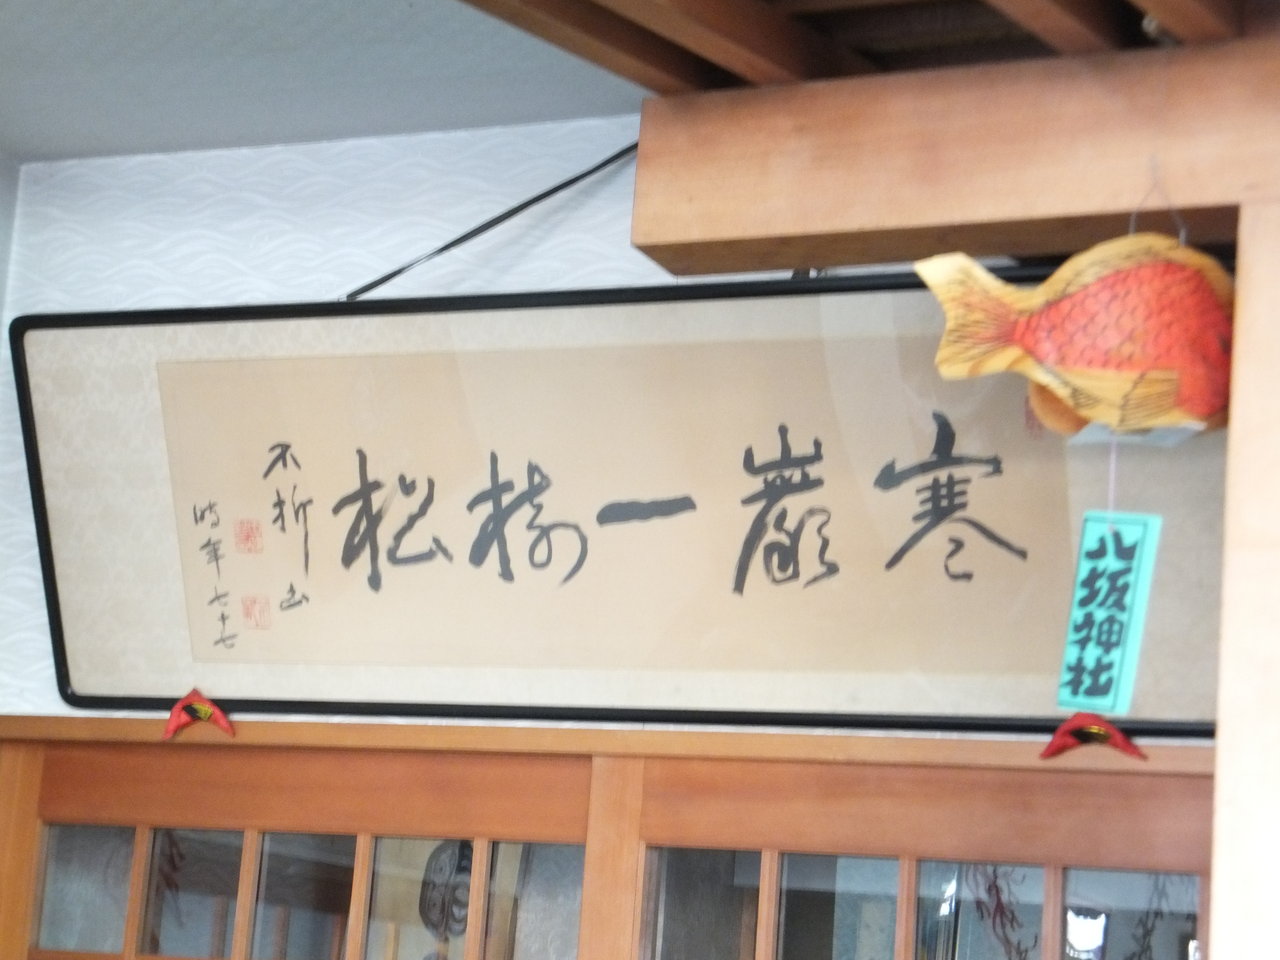 寒巖一樹松
不折山
時年七十七
八坂神社